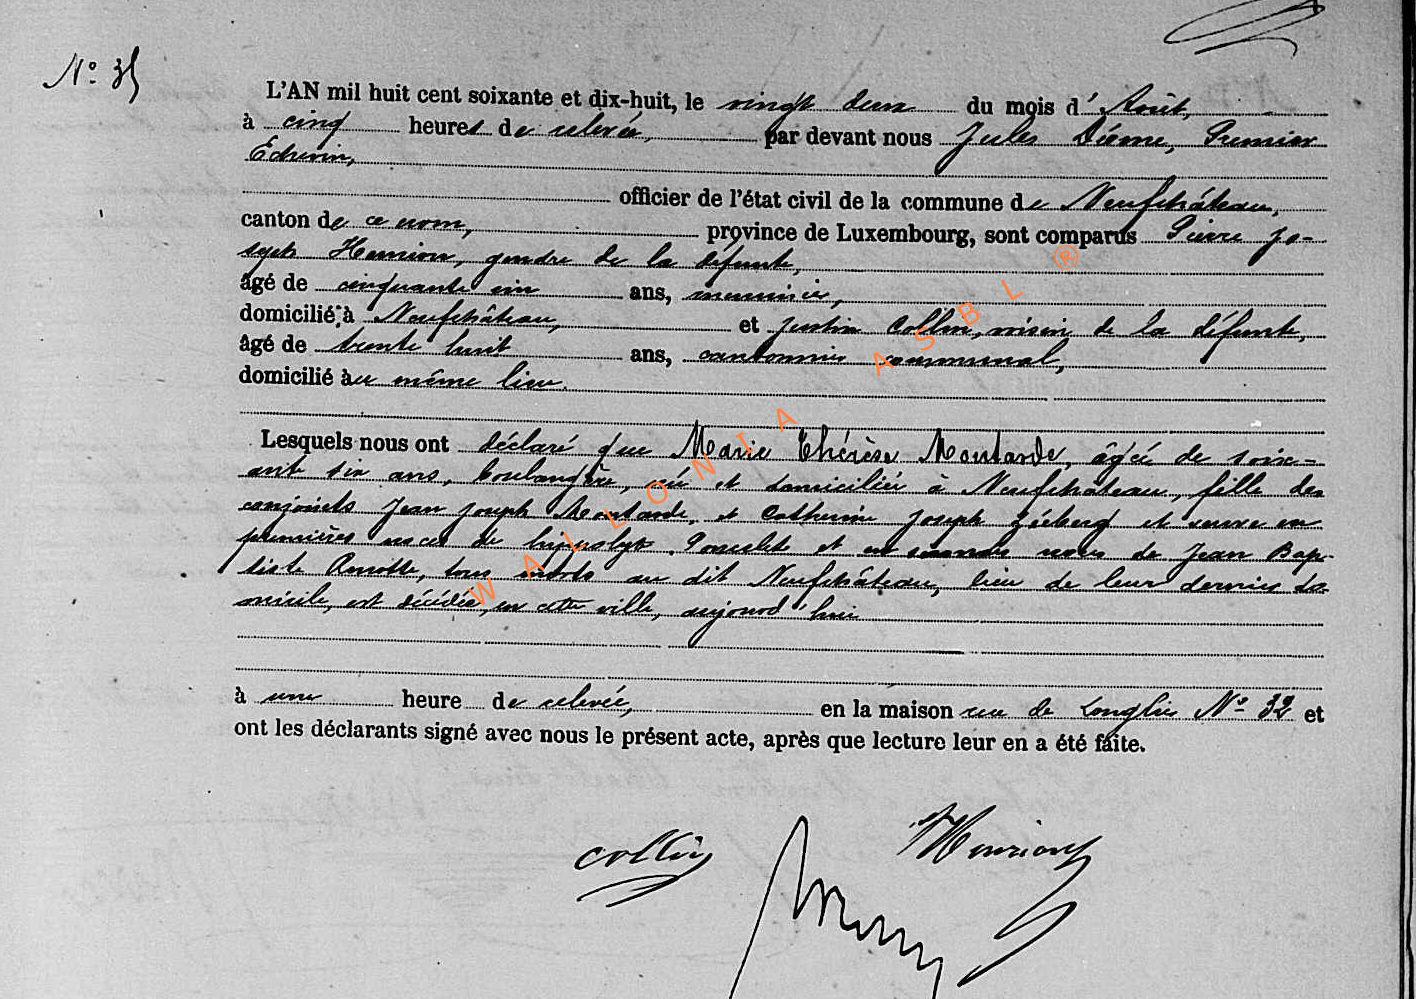 N° 35
L'AN mil huit cent soixante et dix-huit, le vingt deux du mois d'Août,
à cinq heures de relevée, par devant nous Jules Dième, Premier
Echevin,
officier de l'état civil de la commune de Neufchâteau,
canton de ce nom, province de Luxembourg, sont comparus Pierre Jo-
seph Henrion, gendre de la défunte,
âgé de cinquante un ans, meunier,
domicilié à Neufchâteau, et Justin Collin, voisin de la défunte,
âgé de trente huit ans, cantonnier communal,
domicilié au même lieu.
Lesquels nous ont déclaré que Marie Thérèse Moutarde, âgée de soix-
ante six ans, boulangère, née et domiciliée à Neufchâteau, fille des
conjoints Jean Joseph Moutarde, et Catherine Joseph et veuve en
premières noces de hippolyte Poncelet et en secondes noces de Jean Bap-
tiste tous morts au dit Neufchâteau, lieu de leur dernier do-
micile, est décédée, en cette ville, aujourd'hui
à une heure de relevée, en la maison rue de Longlier N° 32 et
ont les déclarants signé avec nous le présent acte, après que lecture leur en a été faite.
Collin
Henrion
WALLONIA ASBL ®